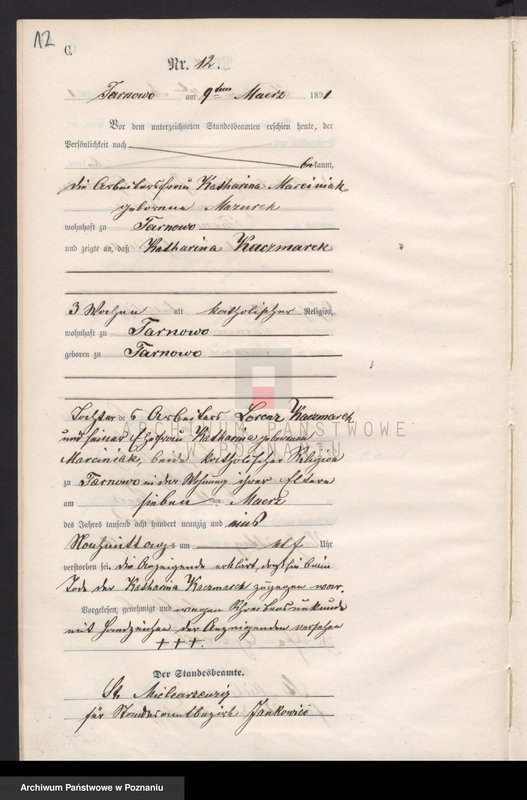 12
C.
Nr. 12.
Tarnowo am 9ten Maerz 1891
Vor dem unterzeichneten Standesbeamten erschien heute, der
Persönlichkeit nach
bekannt,
die Arbeitersfrau Katharina Marciniak
geborene Mazurek
wohnhaft zu Tarnowo
und zeigte an, daß Katharina Kaczmarek
3 Wochen alt katholischer Religion,
wohnhaft zu Tarnowo
geboren zu Tarnowo
Tochter des Arbeiters Lorenz Kaczmarek
und seiner Ehefrau Katharina geborenen
Marciniak, beide katholischer Religion
zu Tarnowo in der Wohnung ihrer Eltern
am sieben ten Maerz
des Jahres tausend acht hundert neunzig und eins
Nachmittags um elf Uhr
verstorben sei. Die Anzeigende erklärt, daß sie beim
Tode der Katharina Kaczmarek zugegen war.
Vorgelesen, genehmigt und wegen Schreibensunkunde
mit Handzeichen der Anzeigenden versehen
+++.
Der Standesbeamte.
St.
für Standesamtsbezirk Jankowice
ARCHIWUM PAŃSTWOWE
W POZNANIU
Archiwum Państwowe w Poznaniu